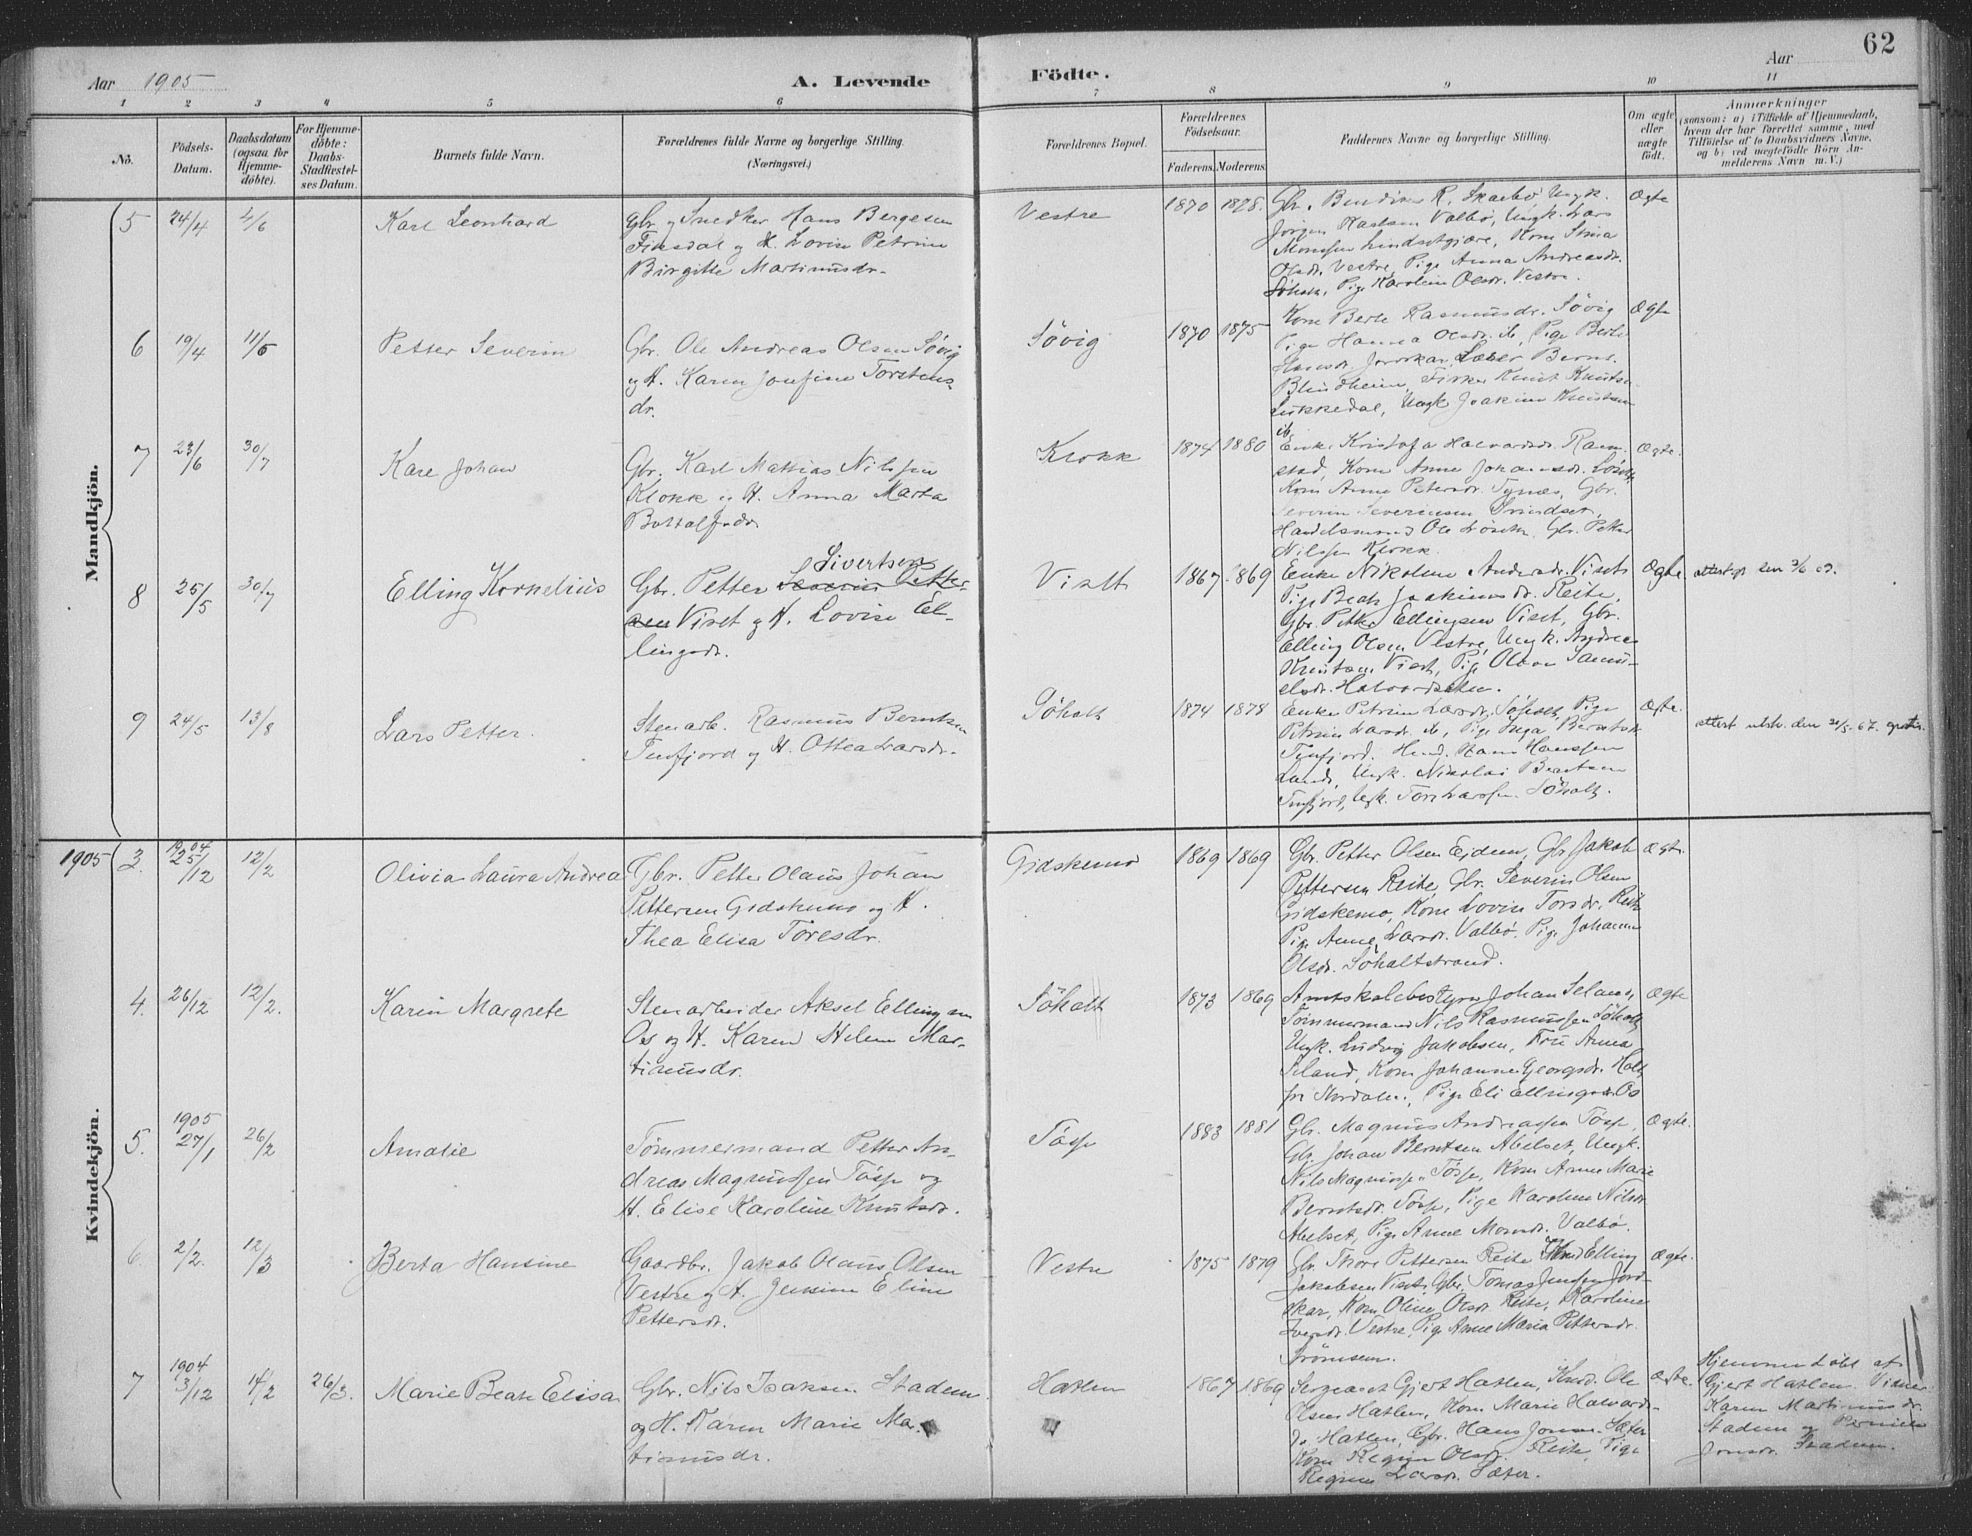 62
Aar 1905
A. Levende
Födte.
Aar
1 2 3 4 5 6 7 8 9 10 11
No.
Födsels-Datum.
Daabsdatum (ogsaa for Hjemme-döbte).
For Hjemme-döbte: Daabs-Stadfæstel-ses Datum.
Barnets fulde Navn.
Forældrenes fulde Navne og borgerlige Stilling.
(Næringsvei.)
Forældrenes Bopæl.
Forældrenes Födselsaar.
Faderens. Moderens.
Faddernes Navne og borgerlige Stilling.
Om ægte eller uægte födt.
Anmærkninger
(saasom: a) i Tilfælde af Hjemmedaab,
hvem der har forrettet samme, med
Tilföielse af to Daabsvidners Navne,
og b) ved uægtefödte Börn An-
melderens Navn m. V.)
Mandkjön.
5 24/4 4/6 Karl Leonhard
Gbr. og Snedker Hans Bergesen
Finsdal og H. Lovise Petrine
Birgitte Martinusdr.
Vestre 1870 1878.
Gbr. Bendik R. Skarbö, Ungk.
Jörgen Karlsen Valbö, Ungk. Lars
Monsen Lindsetgjære, Kone Stina
Olsdr. Vestre, Pige Anna Andreasdr.
Söholt, Pige Karoline Olsdr. Vestre.
Ægte
6 19/4 11/6 Petter Severin
Gbr. Ole Andreas Olsen Søvig
og H. Karen Josefine Torstens-
dr.
Søvig 1870 1875
Kone Berte Rasmusdr. Søvig
Pige Hanna Olsdr. ib, Pige Berte
Hansdr. Jordskar, Lærer Bernt
Blindheim, Fisker Knut Knutsen
Lukkedal, Ungk. Joakim Knutsen
ib.
Ægte
7 23/6 30/7 Kare Johan
Gbr. Karl Mattias Nilssen
Klokk og H. Anna Marta
Bottolfsdr.
Klokk 1874 1880
Enke Kristofa Halvardsdr. Ram-
stad, Kone Anne Johansdr.
Kone Anne Petersdr. Tynes, Gbr.
Severin Severinsen
Handelsmand Ole Löset, Gbr. Petter
Nilssen Klokk.
Ægte.
8 25/5 30/7 Elling Kornelius
Sivertsen
Gbr. Petter Severin Petter-
sen Viset og H. Lovise El-
lingsdr.
Viset 1867 1869
Enke Nikoline Andersdr. Viset
Pige Beate Joakimsdr. Reite,
Gbr. Petter Ellingsen Viset, Gbr.
Elling Olsen Vestre, Ungk. Andreas
Knutsen Viset, Pige Olave Samu-
elsdr.
Ægte.
9 24/5 13/8 Lars Petter.
Stenarb. Rasmus Berntsen
Tenfjord og H. Ottea Larsdr.
Söholt 1874 1878
Enke Petrine Larsdr. Søholt, Pige
Petrine Larsdr. ib, Pige Inga Berntsdr.
Tenfjord, Hans Hanssen
Lande, Ungk. Nikolai Berntsen
Tenfjord, Ungk. Tore Larssen Söholt.
Ægte.
attest utst. den 21/5-67. gratis.
Kvindekjön.
1905 3. 1904 25/12 12/2 Olivia Laura Andrea
Gbr. Petter Olaus Johan
Pettersen Gidskemo og H.
Thea Elisa Toresdr.
Gidskemo 1869 1869
Gbr. Petter Olsen Ejdem, Gbr Jakob
Pettersen Reite, Gbr. Severin Olsen
Gidskemo, Kone Lovise Torsdr. Reite
Pige Anne Larsdr. Valbö. Pige Johanne
Olsdr. Söholtstrand.
Ægte.
4. 26/12 12/2. Karin Margrete
Stenarbeider Aksel Ellingsen
Os og H. Karen Helene Mar-
tinusdr.
Söholt 1873 1869
Amtskolebestyrer Johan Seland,
Tömmermand Nils Rasmussen Söholt,
Ungk. Ludvig Jakobsen, Fru Anna
Seland, Kone Johanne Georgsdr. Holt
fra Nordalen, Pige Eli Ellingsdr. Os
Ægte
5. 1905 27/1 26/2 Amalie
Tömmermand Petter An-
dreas Magnussen Tösse og
H. Elise Karoline Knutsdr.
Tösse 1883 1881
Gbr. Magnus Andreassen Tösse,
Gbr. Johan Berntsen Abelset, Ungk.
Nils Magnussen Tösse, Kone Anne Marie
Berntsdr. Tösse, Pige Karoline Nilsdr
Abelset, Pige Anne Monsdr. Valbö.
Ægte.
6 2/2. 12/3 Berta Hansine
Gaardbr. Jakob Olaus Olsen
Vestre og H. Jensine Eline
Pettersdr.
Vestre 1875 1879
Gbr. Thore Pettersen Reite Elling
Jakobsen Viset, Gbr. Tomas Jensen Jord-
skar, Kone Oline Olsdr. Reite, Karoline
Iversdr. Vestre, Pige Anne Maria Pettersdr.
Strömsem.
Ægte.
7 1904 3/12 14/2 26/3. Marie Beate Elisa
Gbr. Nils Isaksen Stadem
og H. Karen Marie Mar-
tinusdr.
Hatlen 1867 1869
Sergeant Gjert Hatlen, Ole
Olsen Hatlen, Kone Marie Halvards-
dr. Hatlen, Gbr. Hans Jonsen Sæter
Kone Regine Olsdr. Reite, Pige
Regine Larsdr. Sæter.
Ægte.
Hjemmedöbt af
Gjert Hatlen. Vidner:
Karen Martinusdr.
Stadem og Pernille
Jonsdr. Stadem.